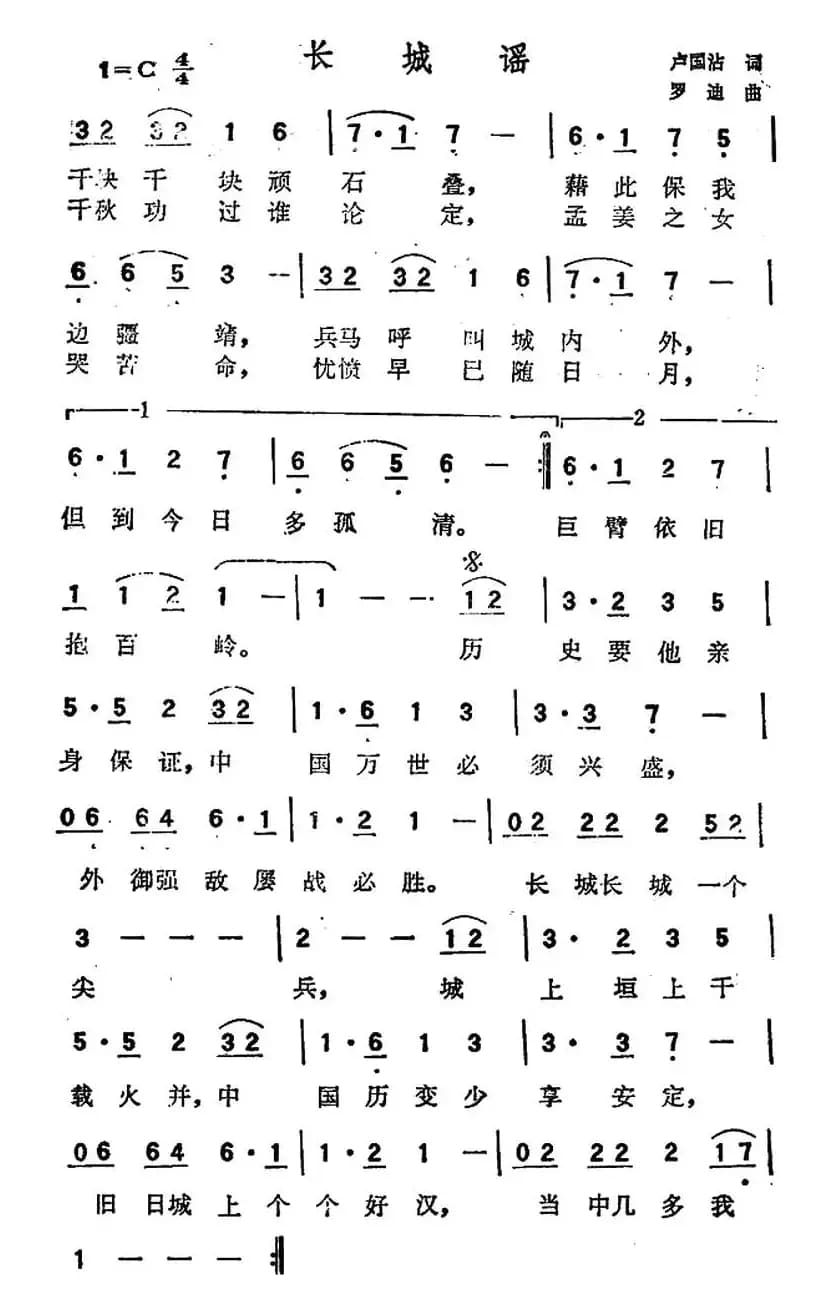 长城谣
1=C 4/4
卢国沾 词
罗迪 曲
32 32 1 6 | 7·1 7 - | 6·1 7 5 |
千块千块顽石叠，藉此保我
千秋功过谁论定，孟姜之女
6 65 3 - | 32 32 1 6 | 7·1 7 — |
边疆靖，兵马呼叫城内外，
哭苦命，忧愤早已随日月，
1 2
6·1 2 7 | 6 65 6 — :| 6·1 2 7 |
但到今日多孤清。巨臂依旧
1 12 1 — | 1 — — 12 | 3·2 3 5 |
抱百岭。历史要他亲
5·5 2 32 | 1·6 1 3 | 3·3 7 — |
身保证，中国万世必须兴盛，
06 64 6·1 | 1·2 1 — | 02 22 2 52 |
外御强敌屡战必胜。长城长城一个
3 — — — | 2 — — 12 | 3·2 3 5 |
尖兵，城上垣上千
5·5 2 32 | 1·6 1 3 | 3·3 7 — |
载火并，中国历变少享安定，
06 64 6·1 | 1·2 1 — | 02 22 2 17 |
旧日城上个个好汉，当中几多我
1 — — — :|